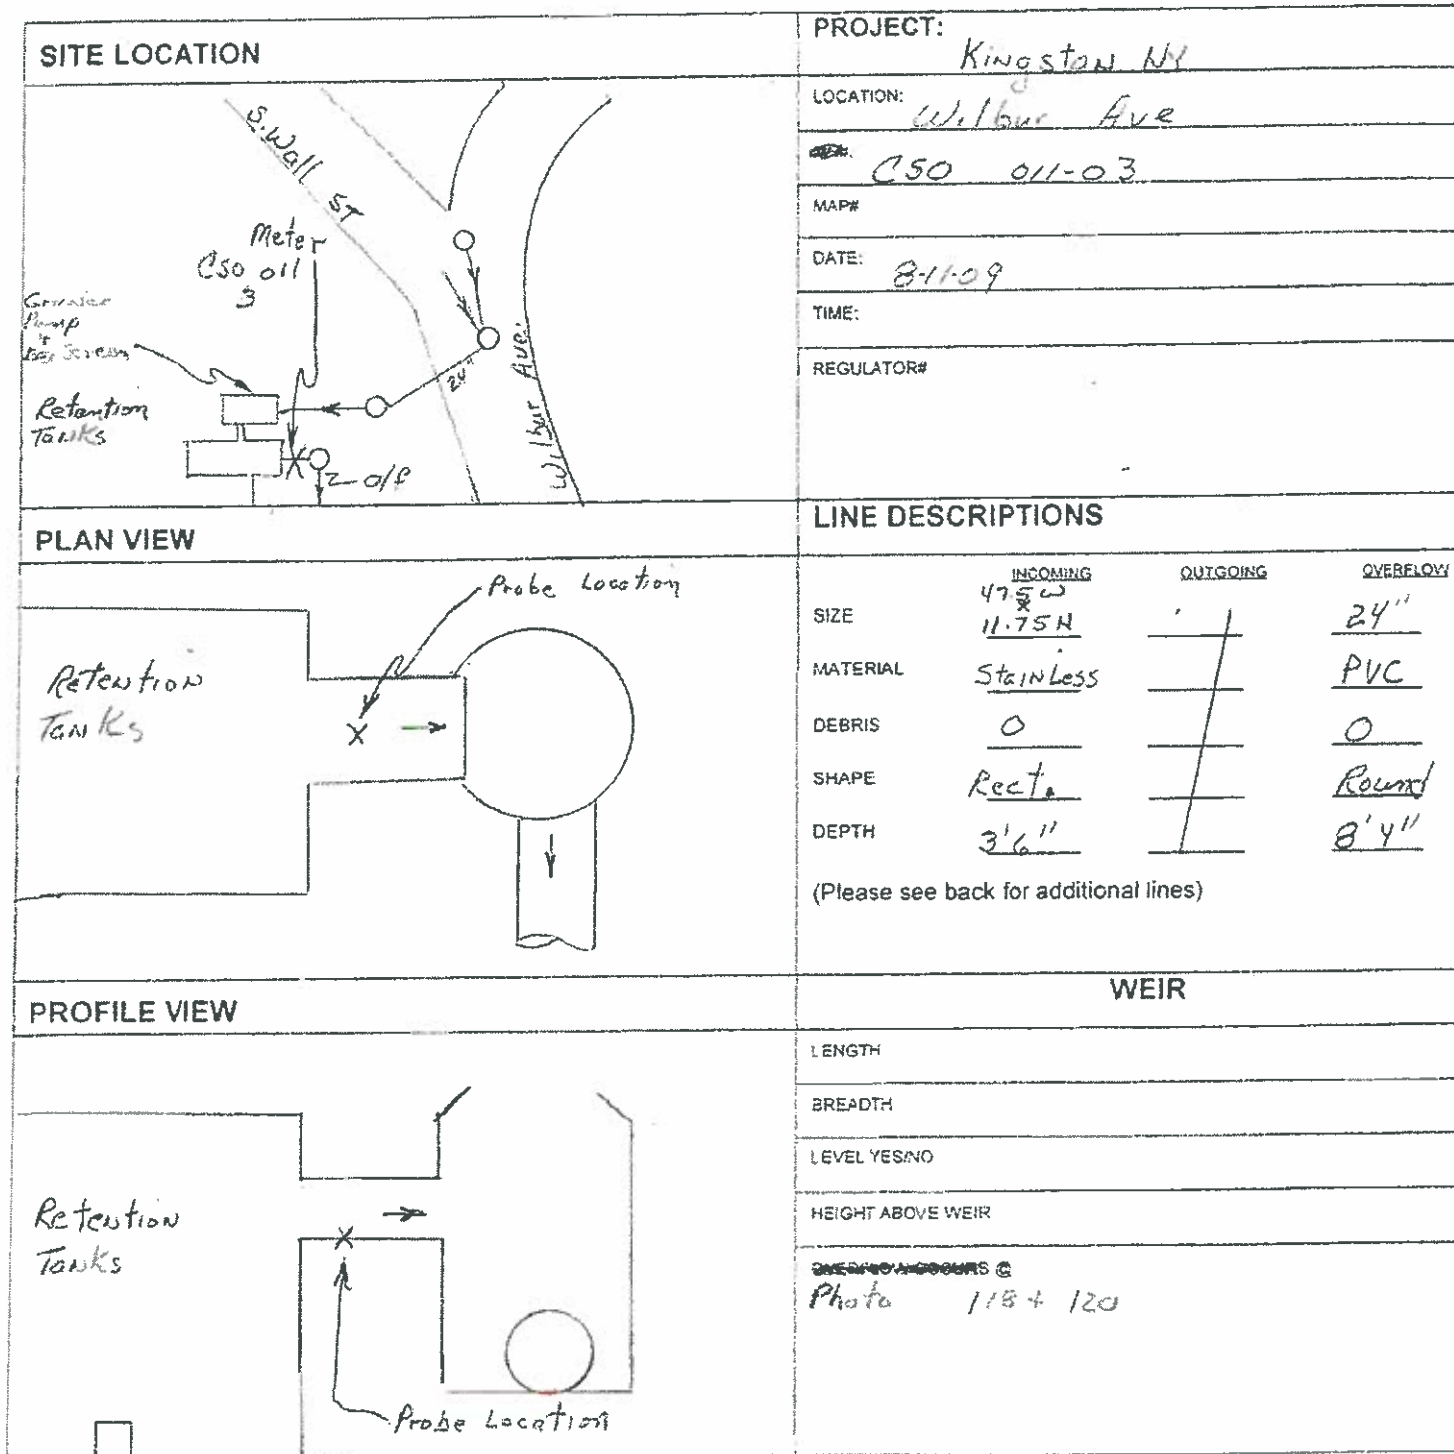 SITE LOCATION
S. Wall ST
Meter
CSO 011
3
Pump
+
Screen
Retention
Tanks
24"
o/f
Wilbur Ave.
PROJECT: Kingston NY
LOCATION: Wilbur Ave
CSO 011-03
MAP#
DATE: 8-11-09
TIME:
REGULATOR#
PLAN VIEW
Probe Location
Retention
Tanks
LINE DESCRIPTIONS
INCOMING OUTGOING OVERFLOW
47.5 W
x
SIZE 11.75 H 24"
MATERIAL Stainless PVC
DEBRIS 0 0
SHAPE Rect. Round
DEPTH 3'6" 8'4"
(Please see back for additional lines)
PROFILE VIEW
Retention
Tanks
Probe Location
WEIR
LENGTH
BREADTH
LEVEL YES/NO
HEIGHT ABOVE WEIR
OVERFLOW OCCURS @
Photo 118 + 120